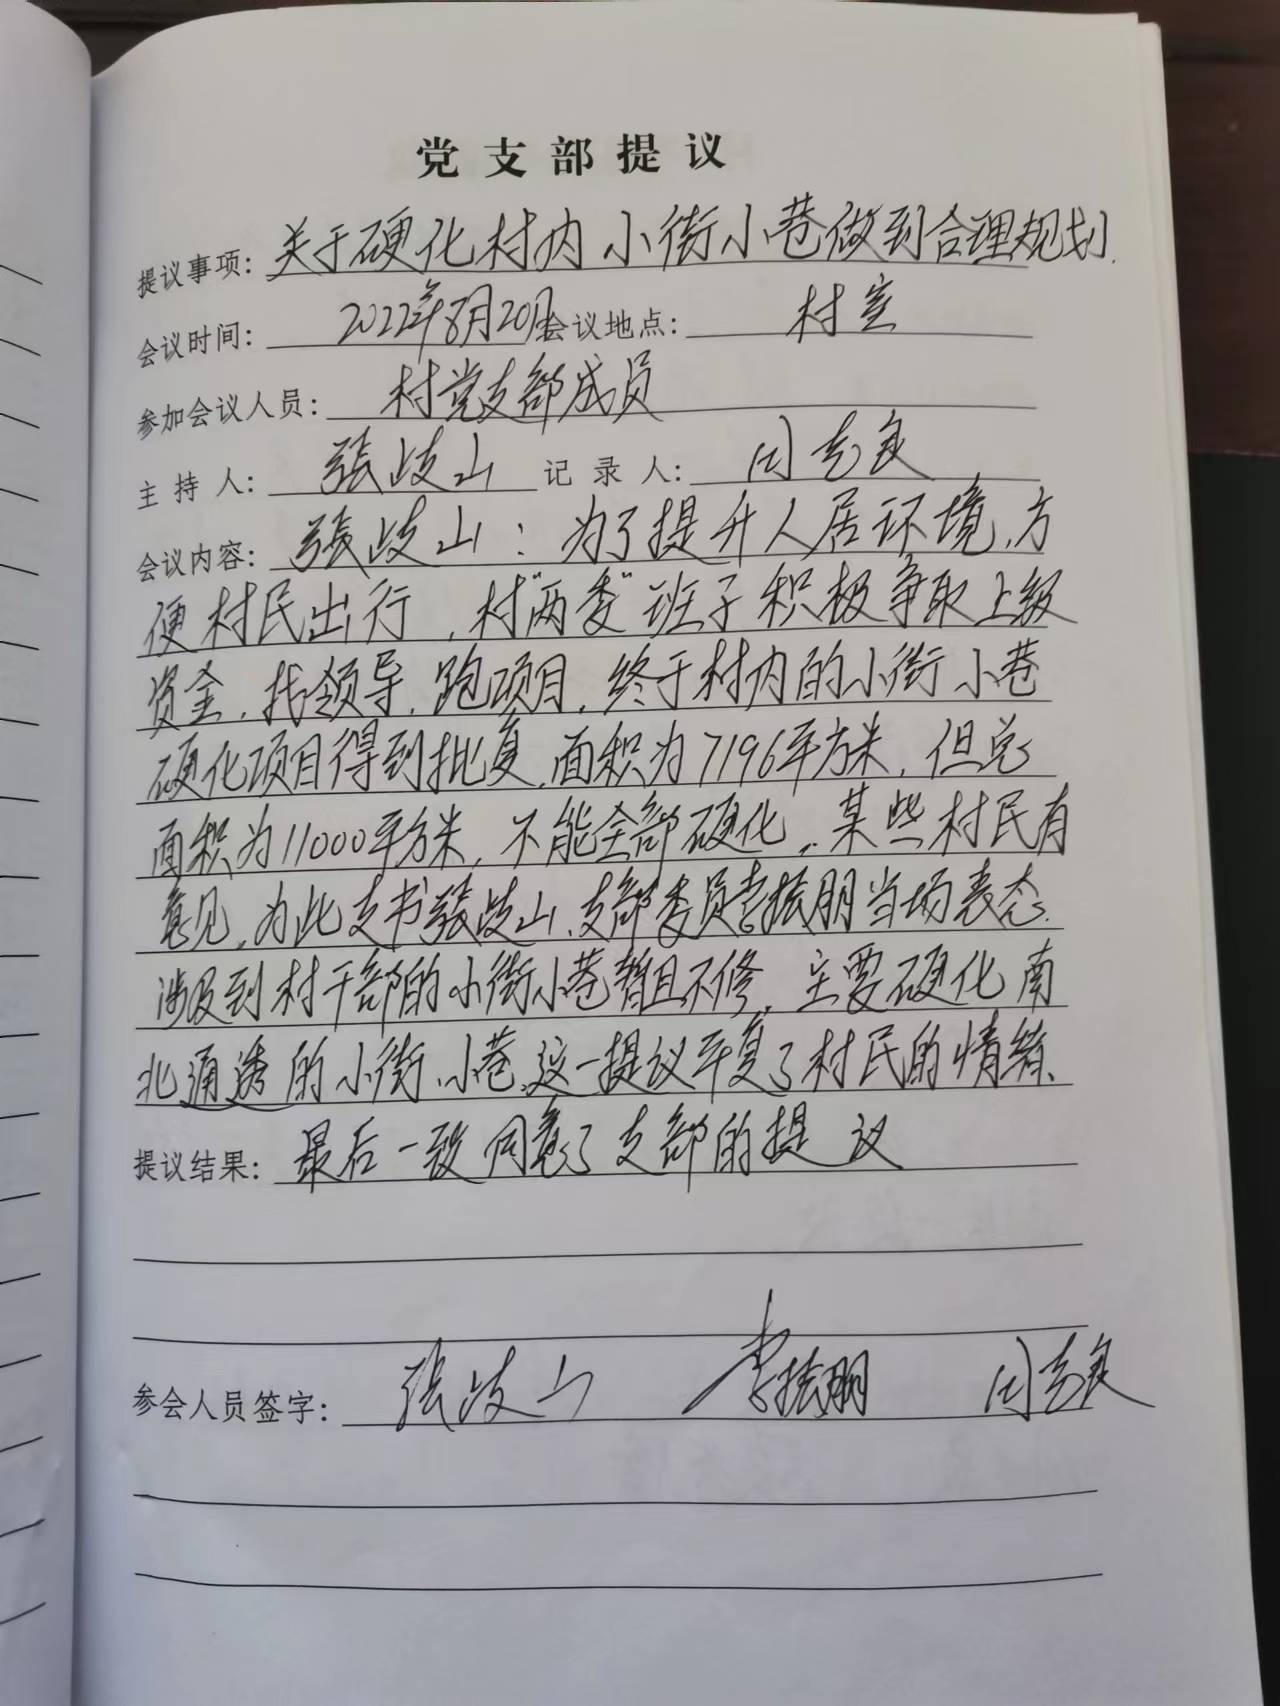 党支部提议
提议事项：关于硬化村内小街小巷做到合理规划.
会议时间：2022年8月20日 会议地点：村室
参加会议人员：村党支部成员
主持人：张岐山 记录人：闫志良
会议内容：张岐山：为了提升人居环境，方
便村民出行，村"两委"班子积极争取上级
资金，找领导，跑项目，终于村内的小街小巷
硬化项目得到批复，面积为7196平方米，但总
面积为11000平方米，不能全部硬化，某些村民有
意见，为此支书张岐山、支部委员李振朋当场表态.
涉及到村干部的小街小巷暂且不修，主要硬化南
北通透的小街、小巷，这一提议平复了村民的情绪、
提议结果：最后一致同意了支部的提议
参会人员签字：张岐山 李振朋 闫志良